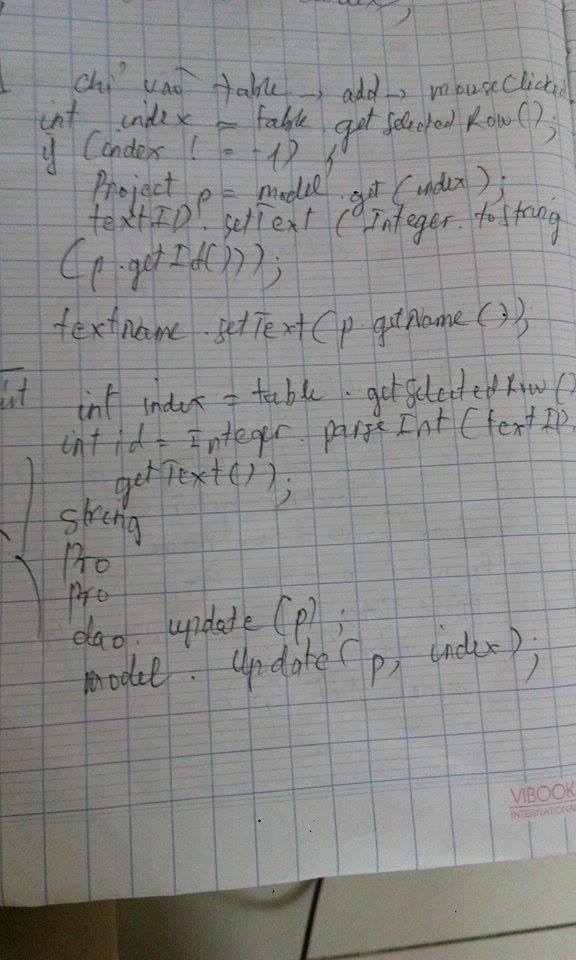 chỉ vào table → add → mouseClicked
int index = table.getSelectedRow();
if (index ! = -1) {
Project p = model.get(index);
textID.setText (Integer.toString
(p.getId()));
textName.setText(p.getName());
int index = table.getSelectedRow()
int id = Integer.parseInt(textID.
getText());
string
Pro
Pro
dao.update(p);
model.Update(p, index);
VIBOOK
INTERNATIONAL